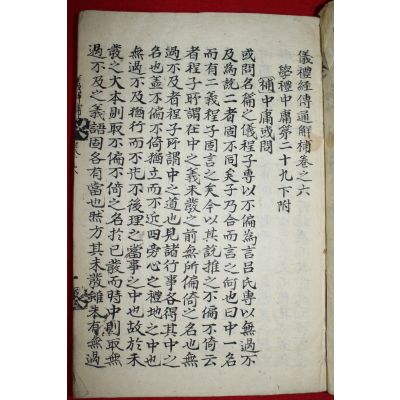 儀禮經傳通解補卷之六
學禮中庸第二十九下附
補中庸或問
或問名篇之儀程子專以不偏爲言呂氏專以無過不
及爲說二者固不同矣子乃合而言之何也曰中一名
而有二義程子固言之矣今以其說推之不偏不倚云
者程子所謂在中之義未發之前無所偏倚之名也無
過不及者程子所謂中之道也見諸行事各得其中之
名也盖不偏不倚猶立而不近四旁心之禮地之中也
無過不及猶行而不先不後理之當事之中也故於未
發之大本則取不偏不倚之名於已發而時中則取無
過不及之義語固各有當也然方其未發雖未有無過